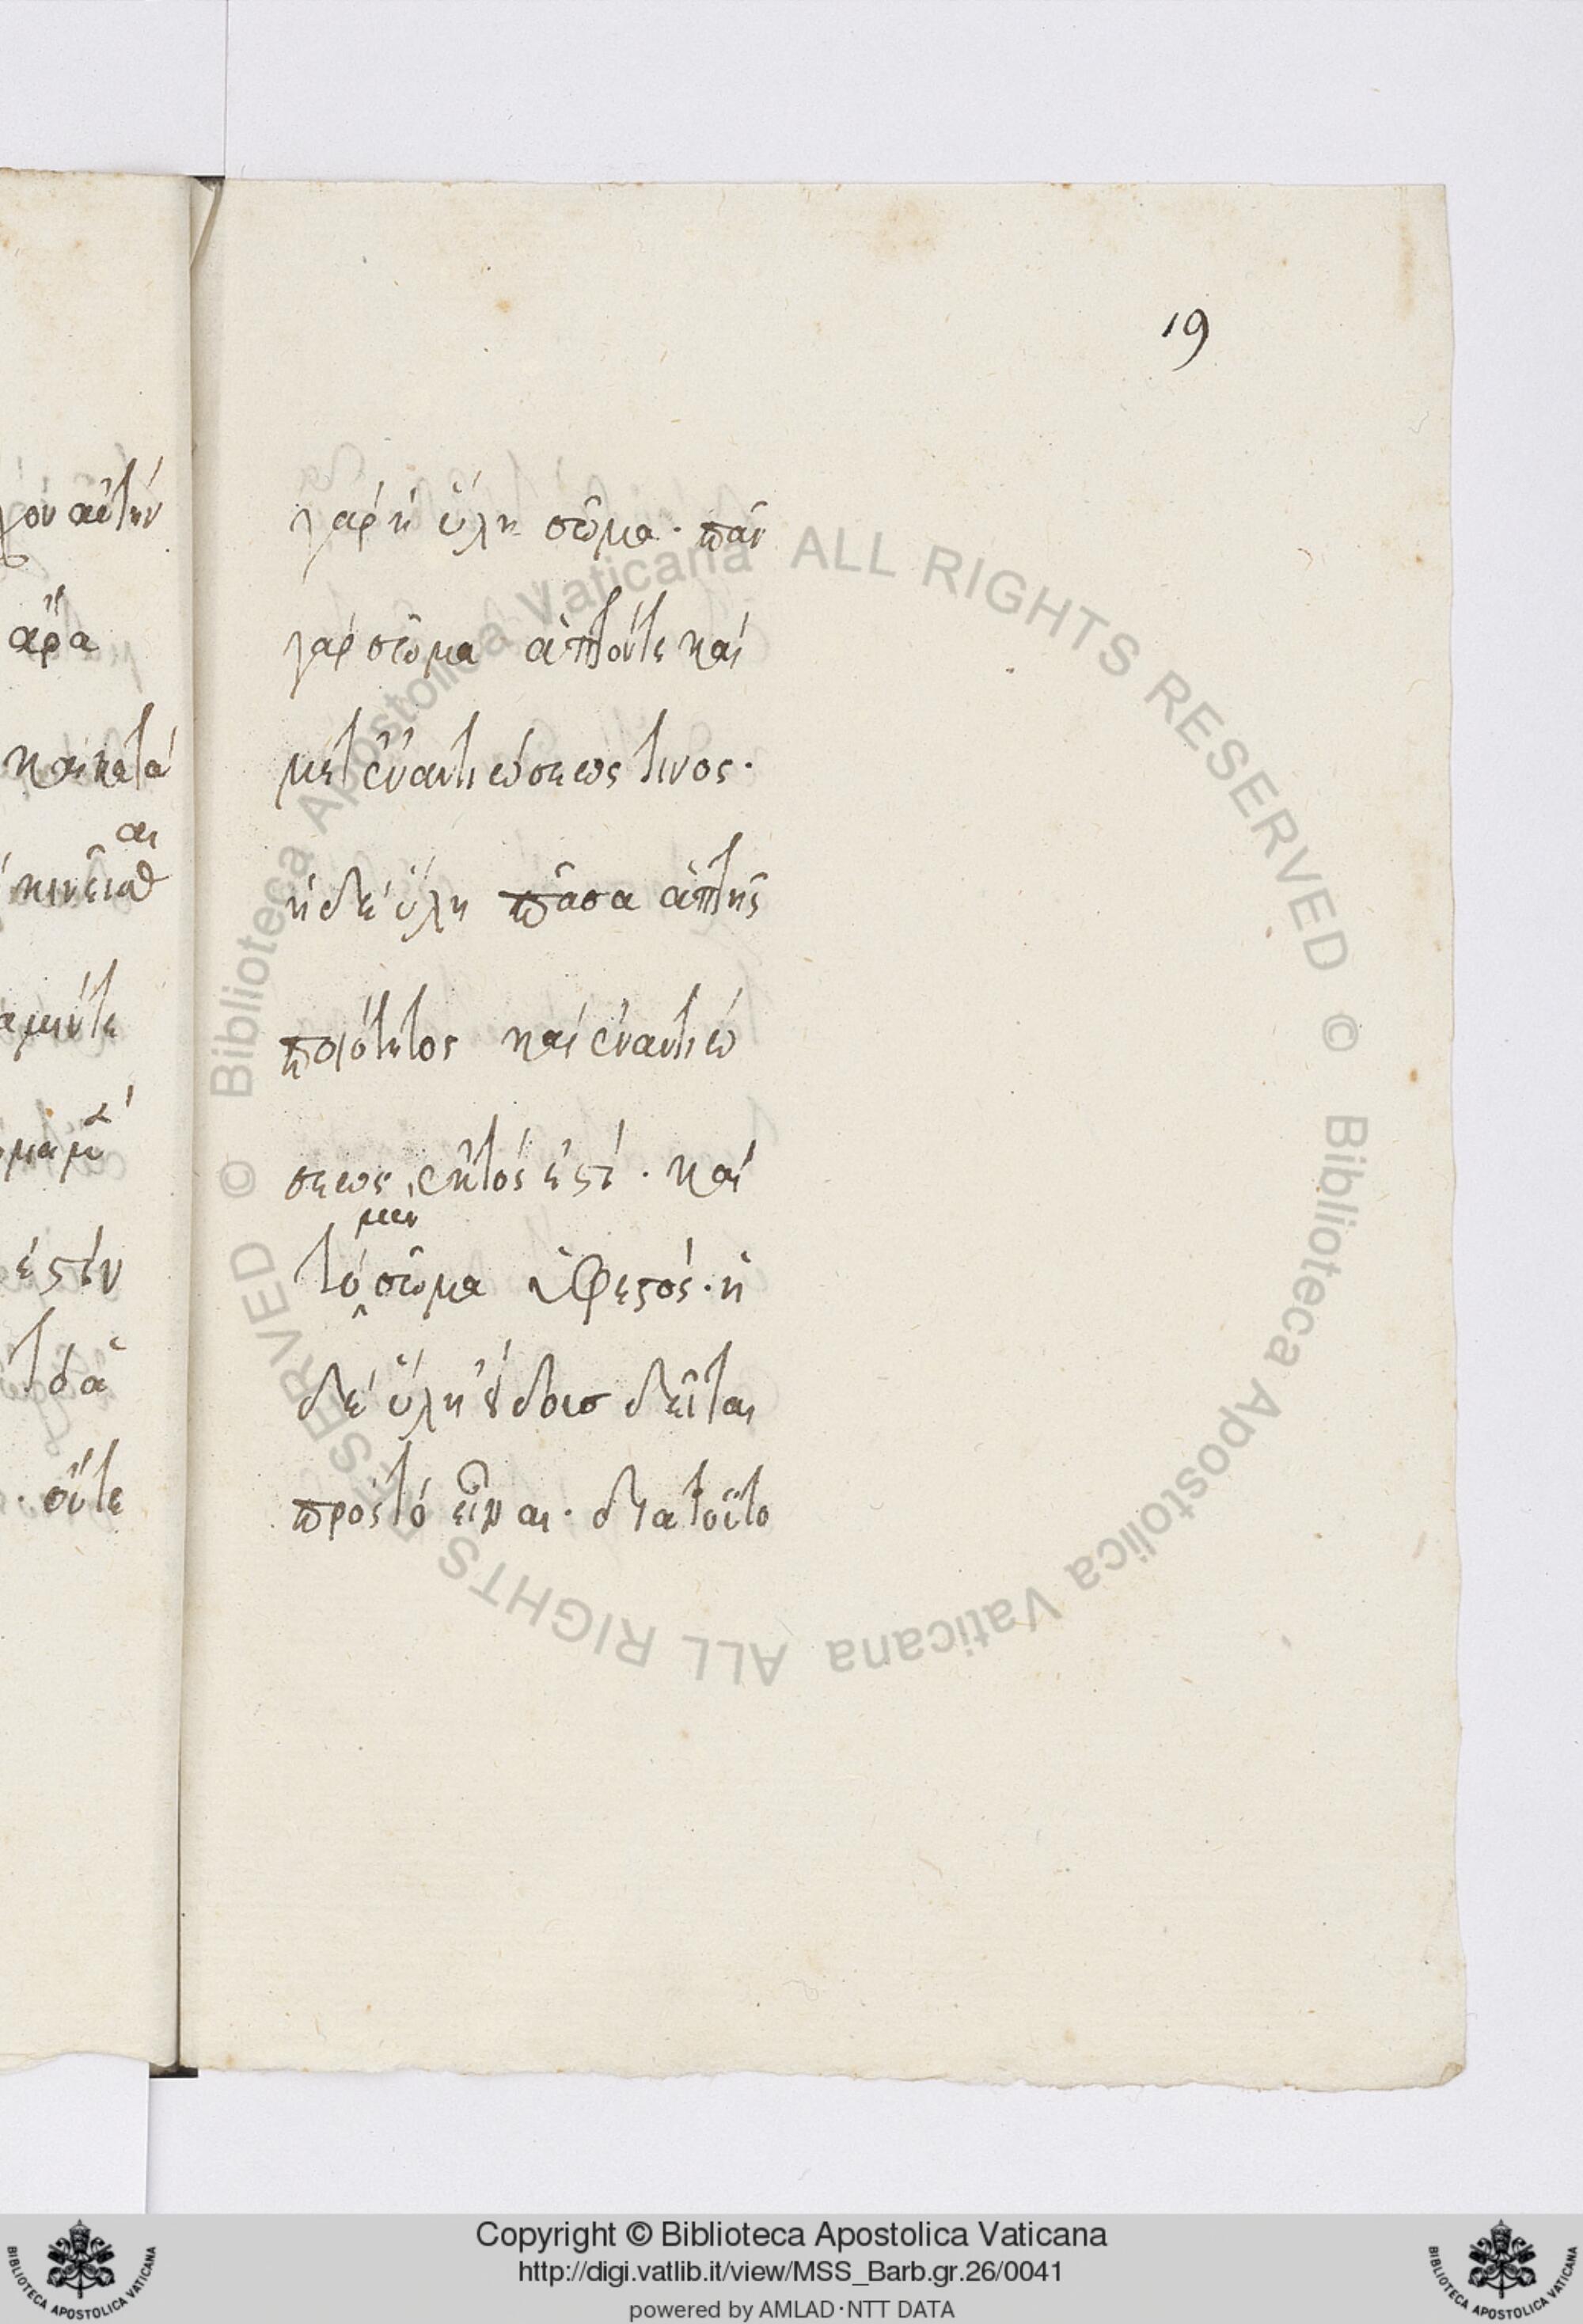 19
γὰρ ἡ ὕλη σῶμα· πᾶν
γὰρ σῶμα ἁπτόν τε καὶ
μετ ἐναντιώσεώς τινος·
ἡ δὲ ὕλη πᾶσα ἁπτῆς
ποιότητος καὶ ἐναντιώ
σεως ἐκτός ἐστι· καὶ
μεν
τὸ σῶμα ὑφεστός· ἡ
δὲ ὕλη
πρὸς τὸ εἶναι· δια τοῦτο
αὐτὴν
ἄρα
καὶ κατὰ
κινεῖσθαι
ἐστὶν
οὔτε
© Biblioteca Apostolica Vaticana ALL RIGHTS RESERVED © Biblioteca Apostolica Vaticana ALL RIGHTS RESERVED
Copyright © Biblioteca Apostolica Vaticana
http://digi.vatlib.it/view/MSS_Barb.gr.26/0041
powered by AMLAD·NTT DATA
BIBLIOTECA APOSTOLICA VATICANA
BIBLIOTECA APOSTOLICA VATICANA